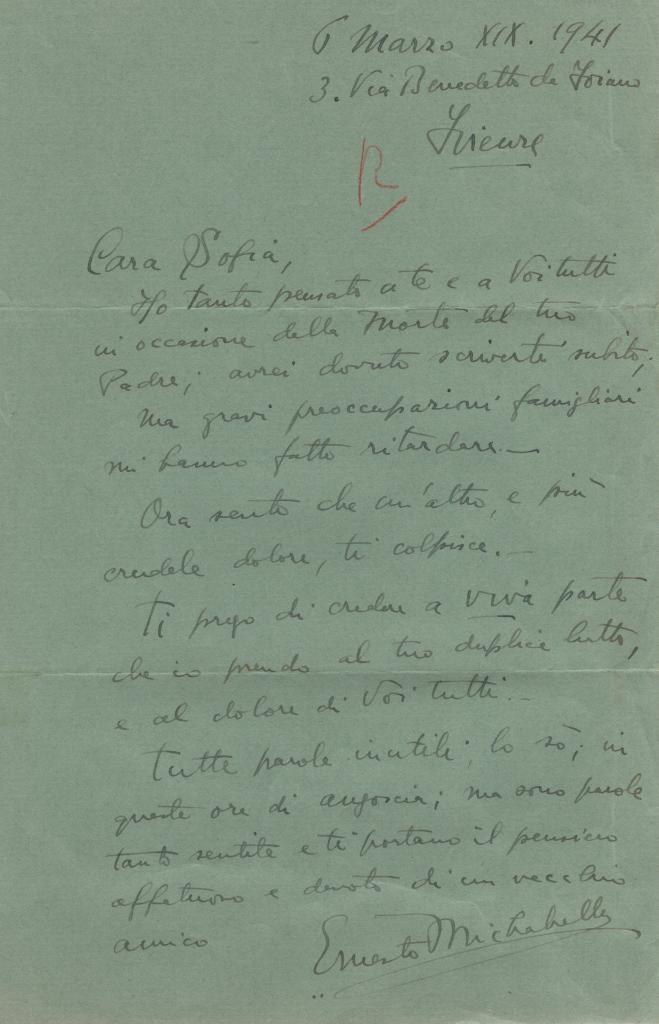 6 Marzo XIX. 1941
3. Via Benedetto da Foiano
Firenze
R
Cara Sofia,
Ho tanto pensato a te e a Voi tutti
in occasione della Morte del tuo
Padre; avrei dovuto scriverte subito;
ma gravi preoccupazioni famigliari
mi hanno fatto ritardare.—
Ora sento che un'altro, e più
crudele dolore, ti colpisce.—
Ti prego di credere a viva parte
che io prendo al tuo duplice lutto,
e al dolore di Voi tutti.—
Tutte parole inutili, lo sò, in
queste ore di angoscia; ma sono parole
tanto sentite e ti portano il pensiero
affettuoso e devoto di un vecchio
amico
Ernesto Michahelles